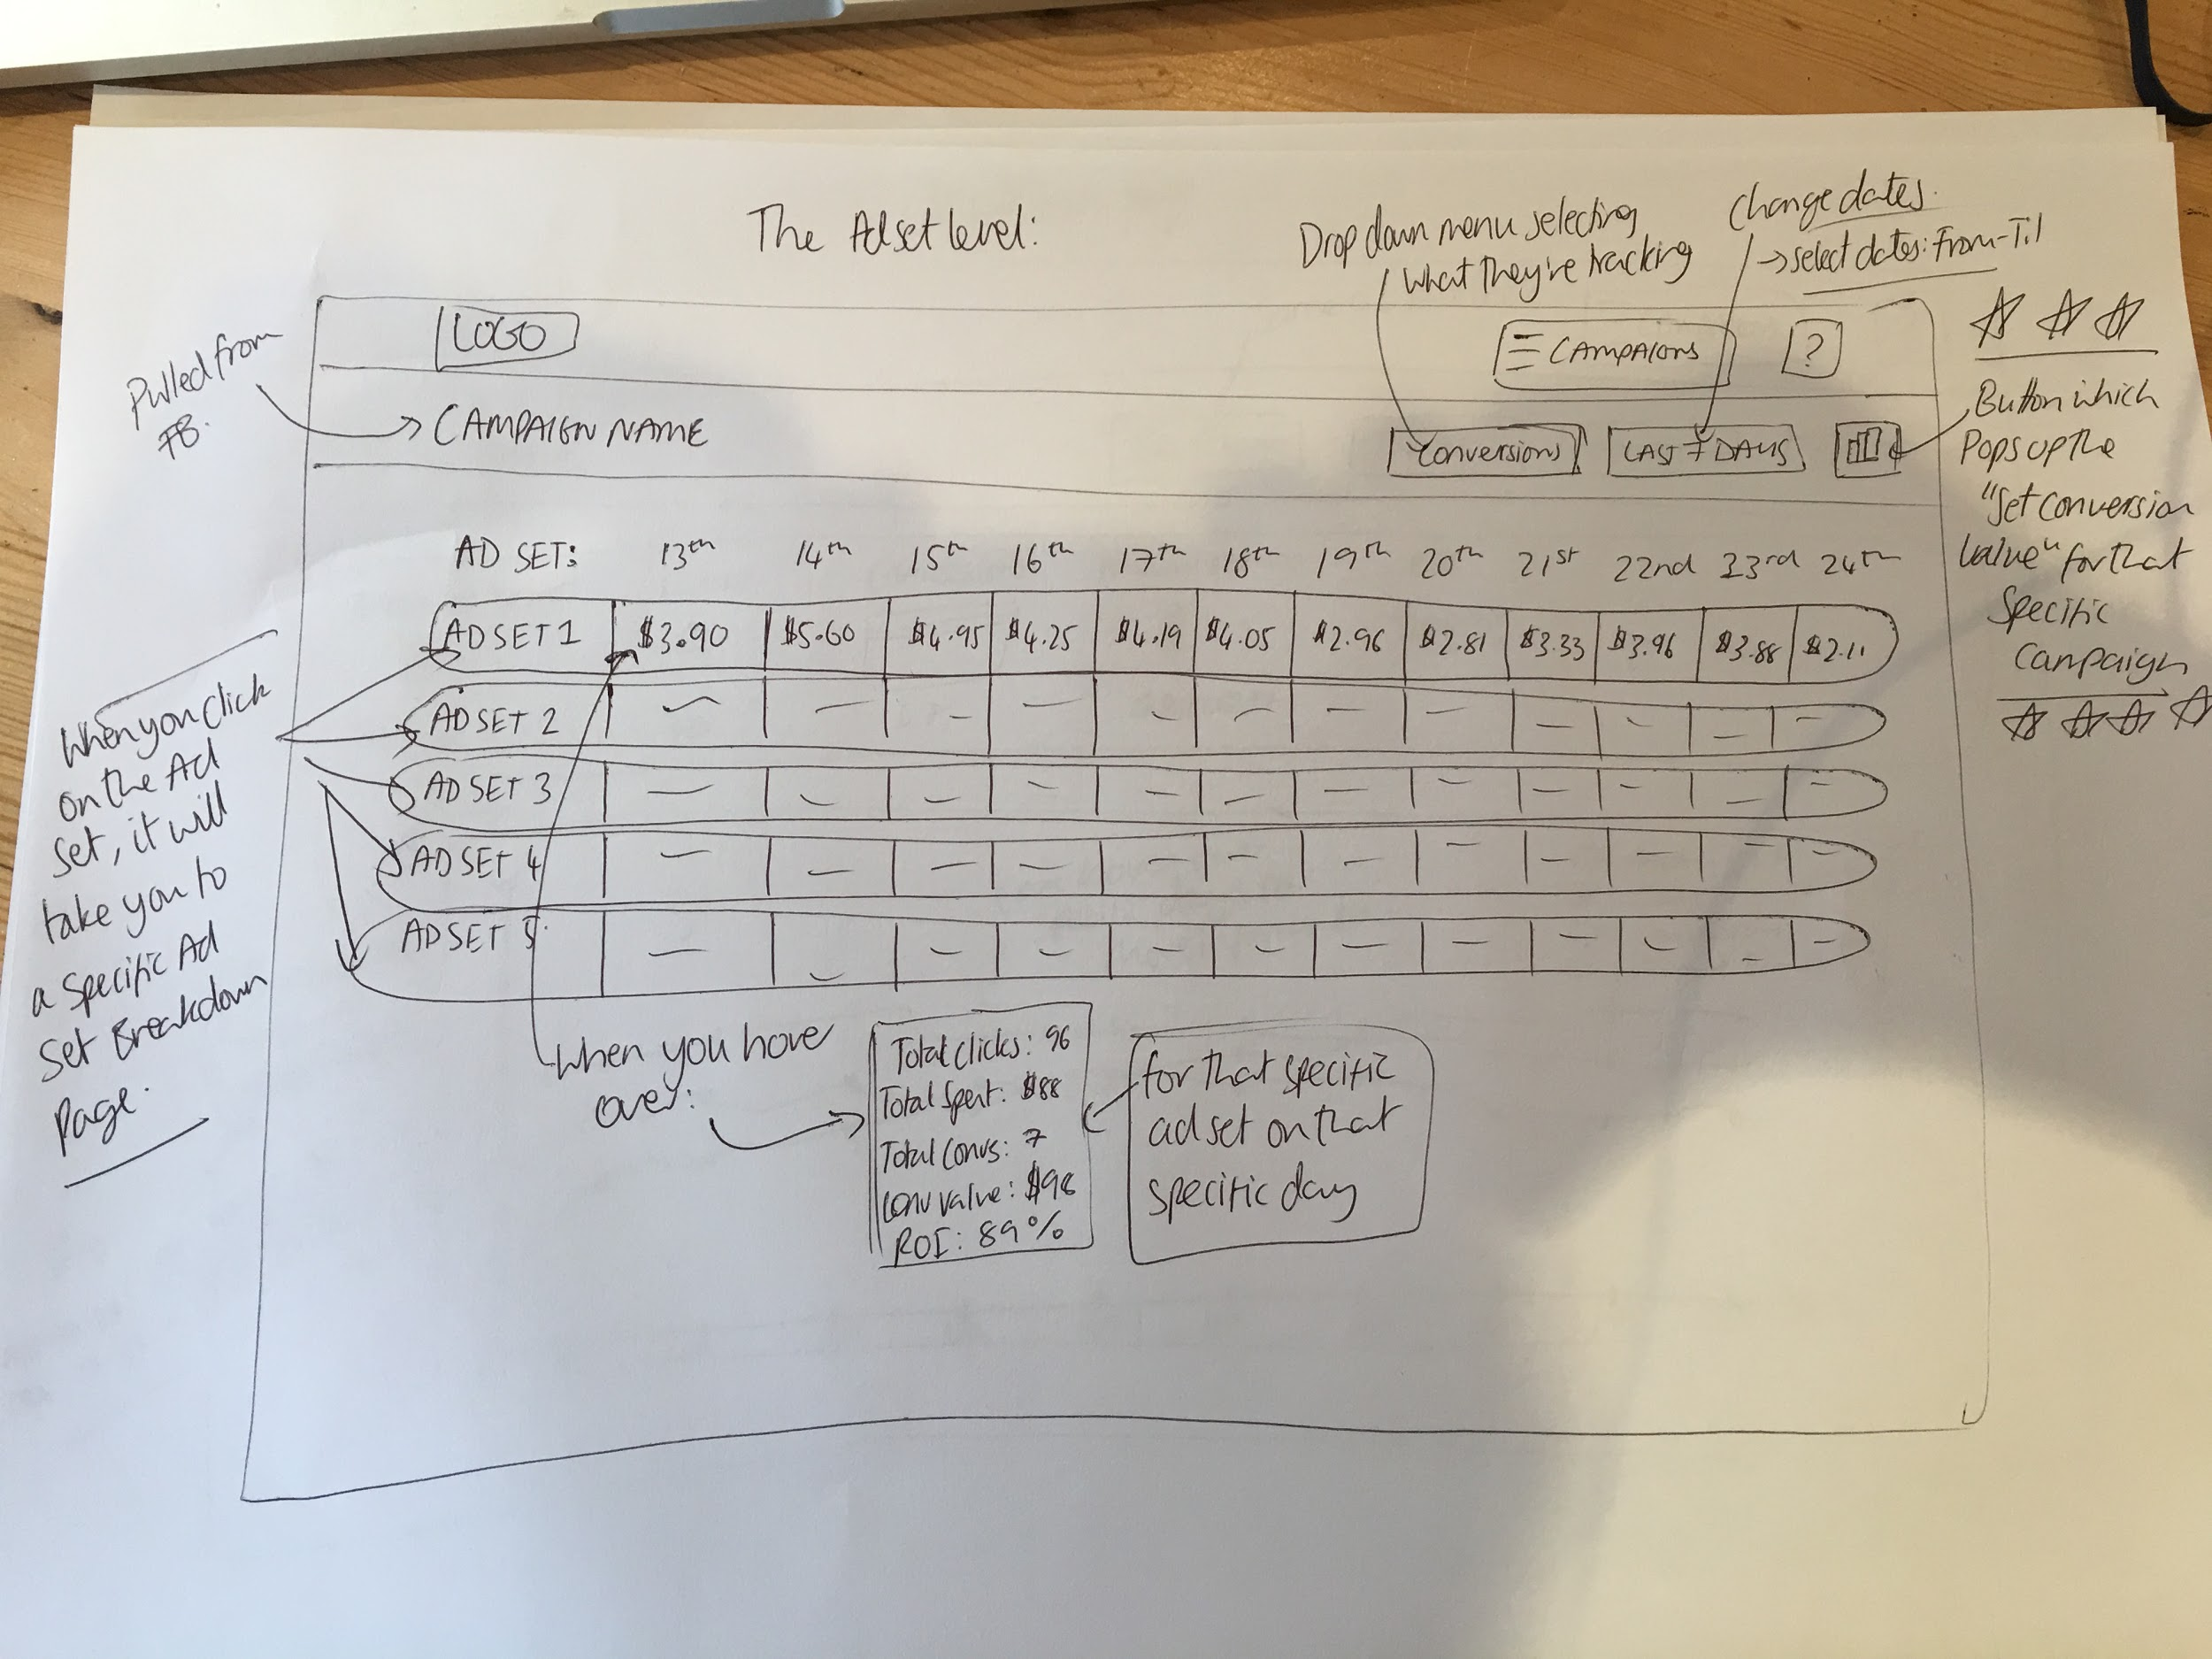 The Adset level:
Drop down menu selecting
what they're tracking
Change dates.
→ select dates: From-Til
Pulled from
FB.
LOGO
CAMPAIGNS
?
CAMPAIGN NAME
Conversions
LAST 7 DAYS
Button which
Pops up the
"Set conversion
value" for that
Specific
Campaign
AD SET: 13th 14th 15th 16th 17th 18th 19th 20th 21st 22nd 23rd 24th
AD SET 1 $3.90 $5.60 $4.95 $4.25 $4.19 $4.05 $2.96 $2.81 $3.33 $3.96 $3.88 $2.11
AD SET 2
AD SET 3
AD SET 4
AD SET 5
When you click
on the Ad
Set, it will
take you to
a Specific Ad
Set Breakdown
Page.
When you hove
over:
Total clicks: 96
Total Spent: $88
Total Convs: 7
Conv value: $98
ROI: 89%
for that specific
ad set on that
specific day